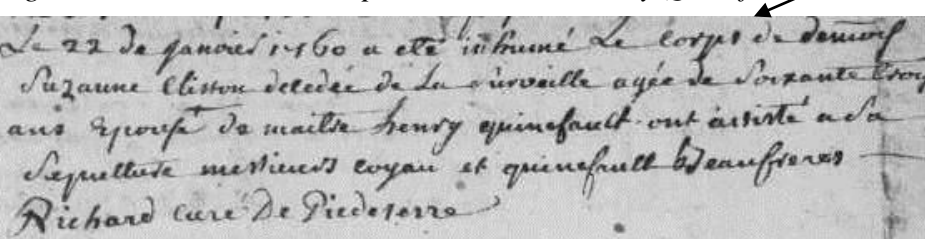 Le 22 de janvier 1760 a eté inhumé Le corps de demois
Suzanne Clisson decedée de La surveille agée de Soixante trois
ans Epouse de maitre henry quinefault ont assisté a Sa
Sepulture messieurs coyau et quinefault Beaufreres
Richard curé De Piedeterre